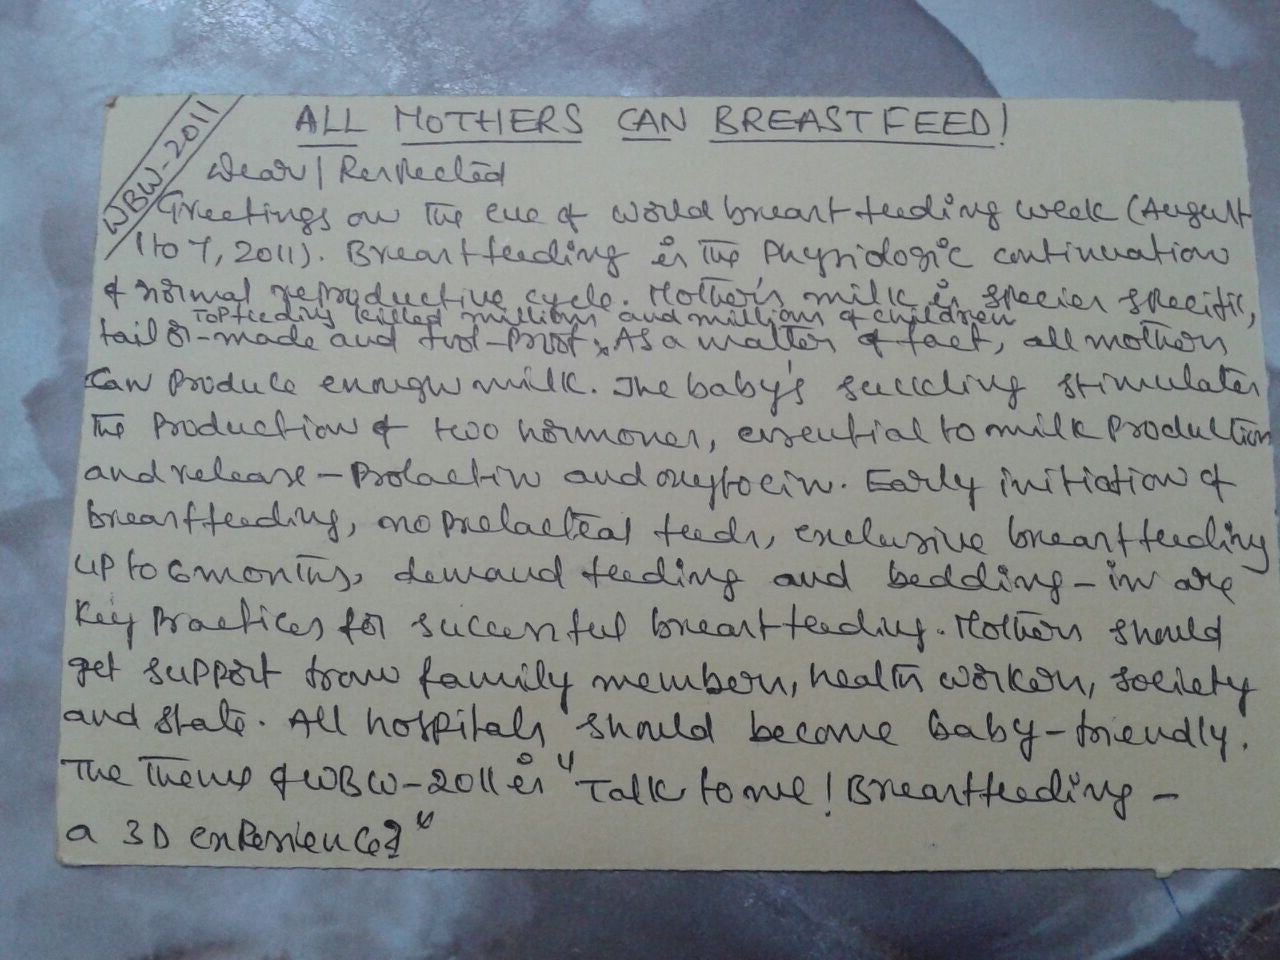 WBW-2011
ALL MOTHERS CAN BREASTFEED!
Dear/Respected
Greetings on the eve of world breastfeeding week (August
1 to 7, 2011). Breastfeeding is the Physiologic continuation
of normal reproductive cycle. Mother's milk is species specific,
Top feeding killed millions and millions of children
tailor-made and fool-proof. As a matter of fact, all mothers
can produce enough milk. The baby's suckling stimulates
the production of two hormones, essential to milk production
and release - Prolactin and oxytocin. Early initiation of
breastfeeding, no prelacteal feeds, exclusive breastfeeding
up to 6 months, demand feeding and bedding-in are
key practices for successful breastfeeding. Mothers should
get support from family members, health workers, society
and state. All hospitals should become baby-friendly.
The Theme of WBW-2011 is "Talk to me! Breastfeeding -
a 3D experience"